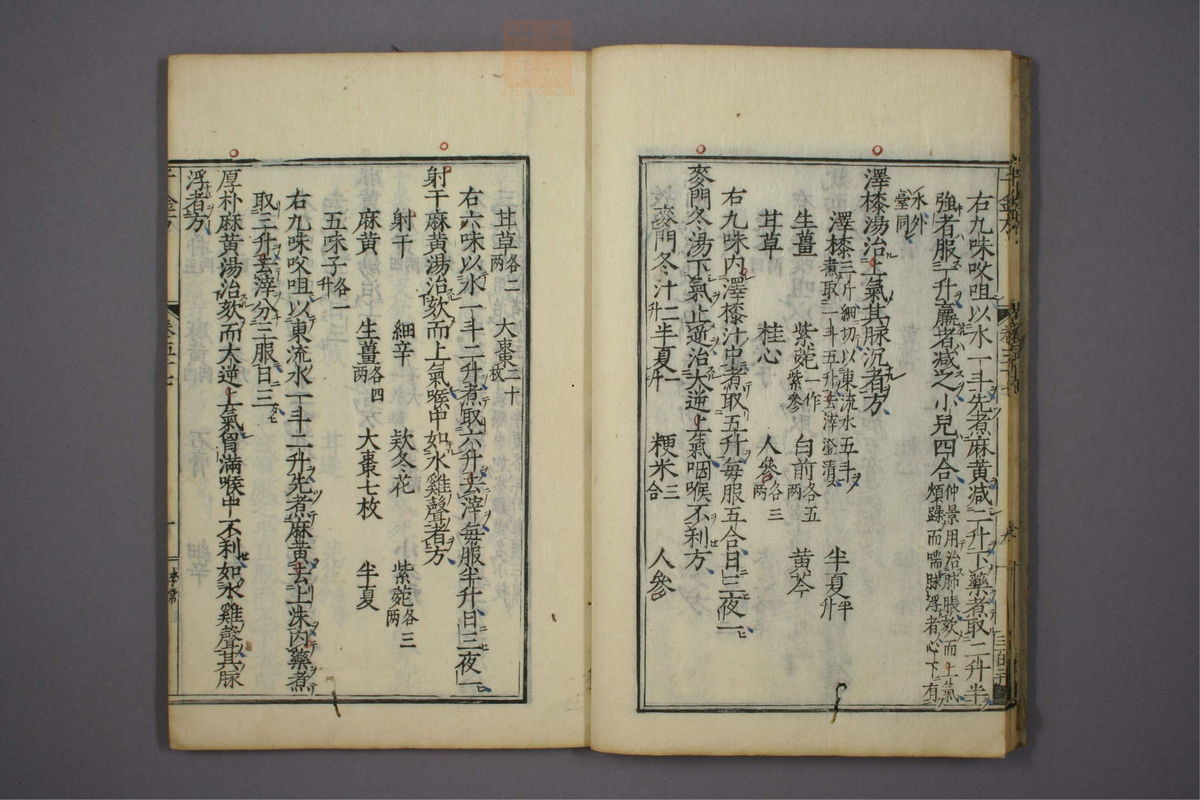 右九味㕮咀以水一斗先煮麻黄减二升下藥煮取二升半
強者服一升羸者减之小兒四合仲景用治肺脹欬而上氣煩躁而喘脉浮者心下有
水外臺同
澤㯃湯治上氣其脉沉者方
澤㯃三斤細切以東流水五斗煮取一斗五升去滓澄清 半夏半升
生薑 紫菀一作紫參 白前各五兩 黄芩
甘草 桂心 人參各三兩
右九味内澤㯃汁中煮取五升每服五合日三夜一
麥門冬湯下氣止逆治大逆上氣咽喉不利方
麥門冬汁二升 半夏一升 粳米三合 人參
甘草各二兩 大棗二十枚
右六味以水一斗二升煮取六升去滓每服半升日三夜一
射干麻黄湯治欬而上氣喉中如水雞聲者方
射干 細辛 欵冬花 紫菀各三兩
麻黄 生薑各四兩 大棗七枚 半夏
五味子各一升
右九味㕮咀以東流水一斗二升先煮麻黄去上沫内藥煮
取三升去滓分三服日三
厚朴麻黄湯治欬而大逆上氣胷滿喉中不利如水雞聲其脉
浮者方